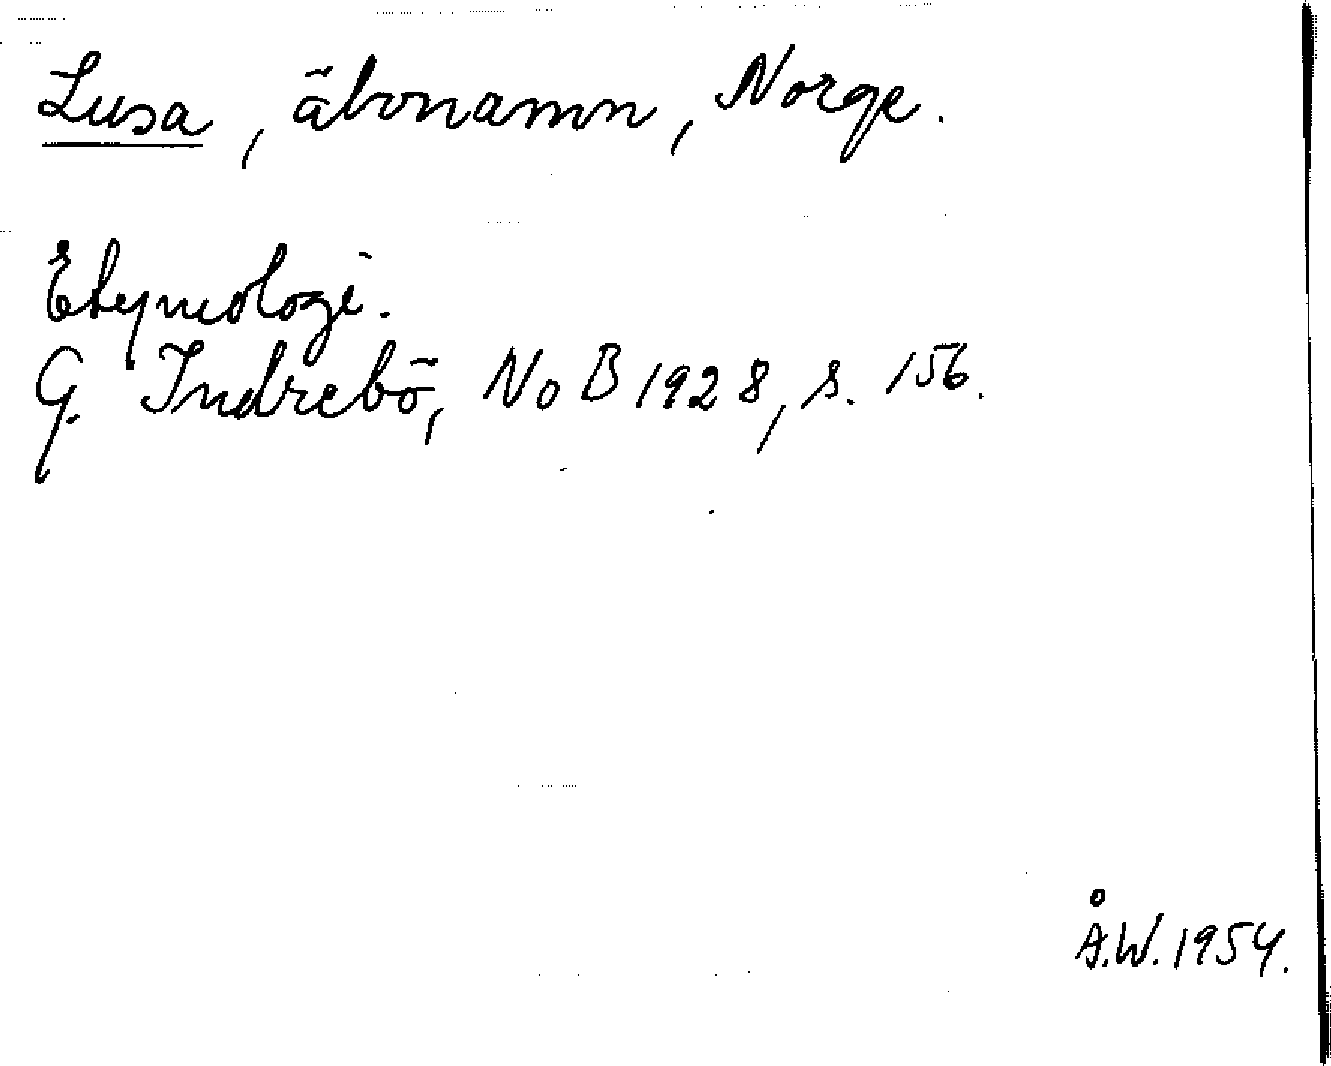 Lusa, älvnamn, Norge.
Etymologi.
G. Indrebö, NoB 1928, s. 156.
Å.W. 1954.